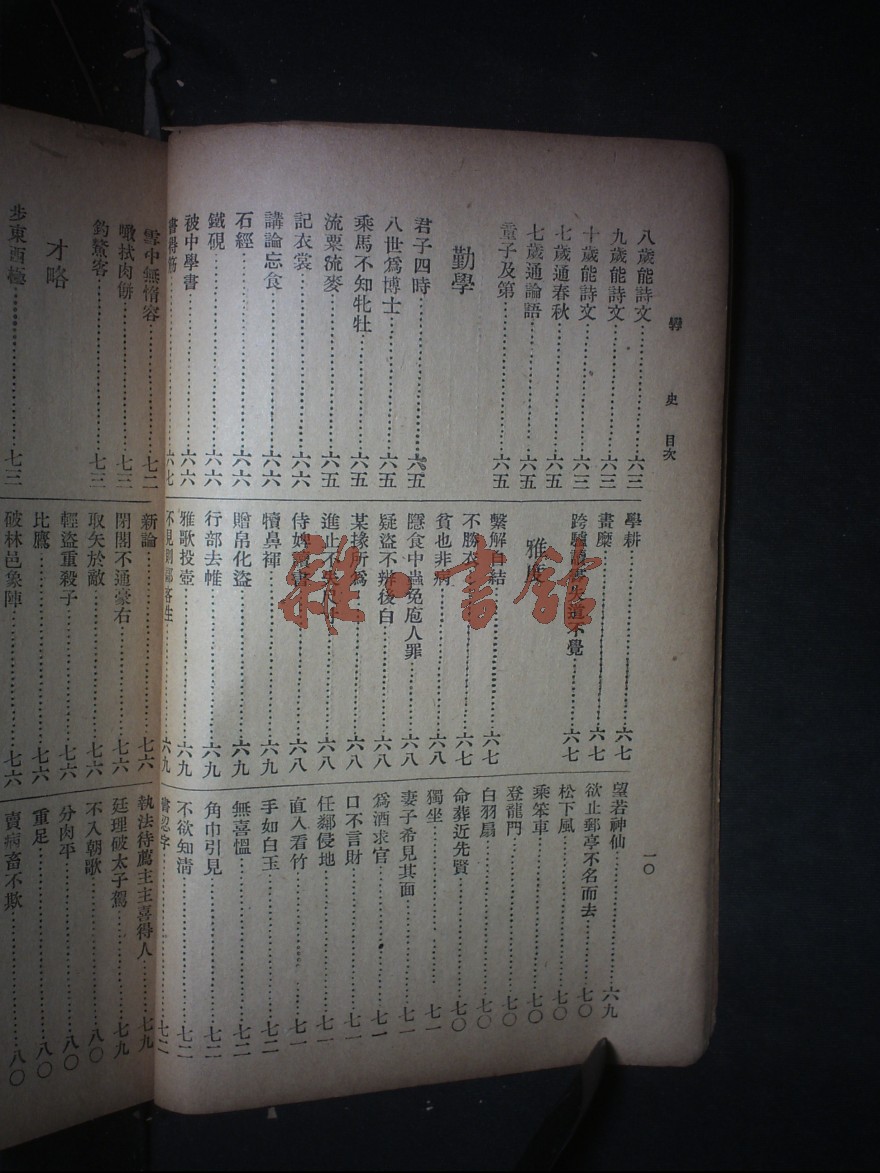 史 目次
一〇
八歲能詩文……六三
九歲能詩文……六三
十歲能詩文……六三
七歲通春秋……六五
七歲通論語……六五
童子及第……六五
勤學
君子四時……六五
八世爲博士……六五
乘馬不知牝牡……六五
流粟流麥……六五
記衣裳……六六
講論忘食……六六
石經……六六
鐵硯……六六
被中學書……六六
六七
學耕……六七
畫糜……六七
跨驢讀書失道不覺……六七
雅度
繫解自結……六七
不勝衣……六七
貧也非病……六八
隱食中蟲免庖人罪……六八
疑盜不辨後白……六八
某掾所爲……六八
進止不失尺寸……六八
侍婢……六八
犢鼻褌……六九
贈帛化盜……六九
行部去帷……六九
雅歌投壺……六九
六九
望若神仙……六九
欲止郵亭不名而去……七〇
松下風……七〇
乘笨車……七〇
登龍門……七〇
白羽扇……七〇
命葬近先賢……七〇
獨坐……七一
妻子希見其面……七一
爲酒求官……七一
口不言財……七一
任鄰侵地……七一
直入看竹……七一
手如白玉……七二
無喜慍……七二
角巾引見……七二
不欲知清……七二
書忍字……七二
雪中無惰容……七二
噉拭肉餅……七三
釣鰲客……七三
才略
步東西極……七三
新論……七六
閉閤不通豪右……七六
取矢於敵……七六
輕盜重殺子……七六
比鷹……七六
破林邑象陣……七六
執法待薦主主喜得人……七九
廷理破太子駕……七九
不入朝歌……八〇
分肉平……八〇
重足……八〇
賣病畜不欺……八〇
雜·書館